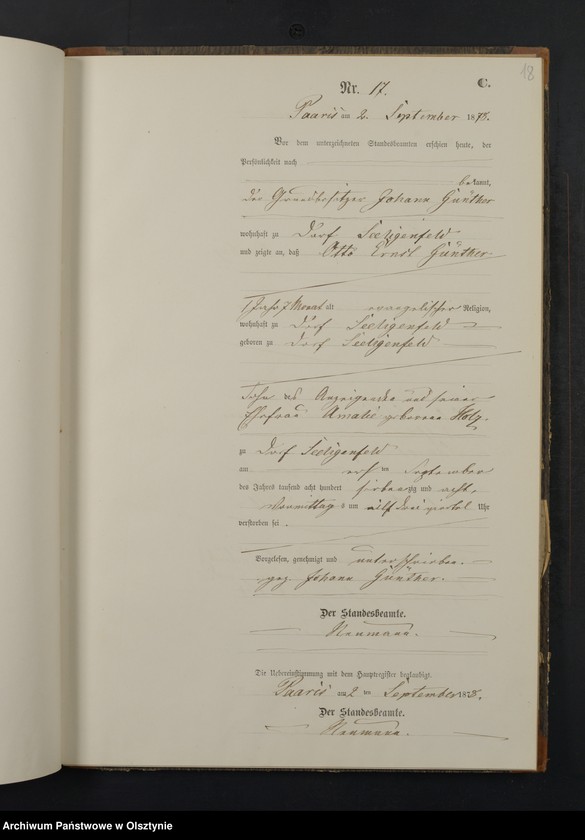 18
C.
Nr. 17.
Paaris am 2. September 1878.
Vor dem unterzeichneten Standesbeamten erschien heute, der
Persönlichkeit nach
bekannt,
der Grundbesitzer Johann Günther
wohnhaft zu Dorf Seeligenfeld
und zeigte an, daß Otto Ernst Günther
1 Jahr 7 Monat alt evangelischer Religion,
wohnhaft zu Dorf Seeligenfeld
geboren zu Dorf Seeligenfeld
Sohn des Anzeigenden und seiner
Ehefrau Amalie geborene Holz
zu Dorf Seeligenfeld
am ersten September
des Jahres tausend acht hundert siebenzig und acht
Vormittags um elf drei viertel Uhr
verstorben sei.
Vorgelesen, genehmigt und unterschrieben
gez. Johann Günther.
Der Standesbeamte.
Naumann.
Die Uebereinstimmung mit dem Hauptregister beglaubigt.
Paaris am 2 ten September 1878.
Der Standesbeamte.
Naumann.
Archiwum Państwowe w Olsztynie